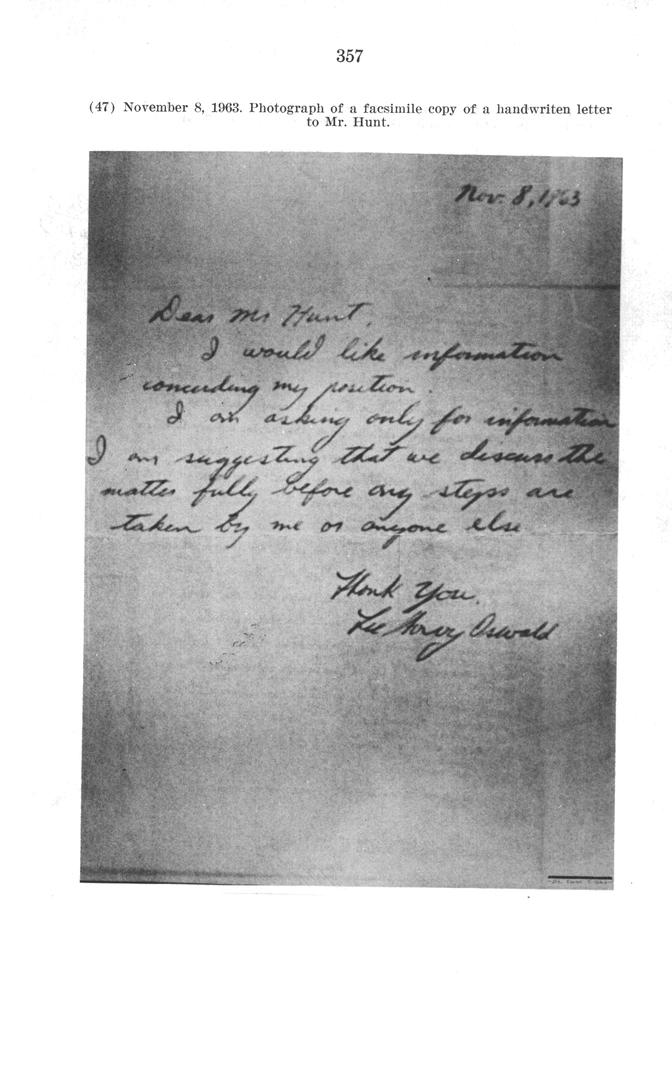 357
(47) November 8, 1963. Photograph of a facsimile copy of a handwriten letter
to Mr. Hunt.
Nov. 8, 1963
Dear Mr Hunt,
I would like information
concerding my position.
I am asking only for information
I am suggesting that we discuss the
matter fully before any steps are
taken by me or anyone else
Thank You.
Lee Harvey Oswald